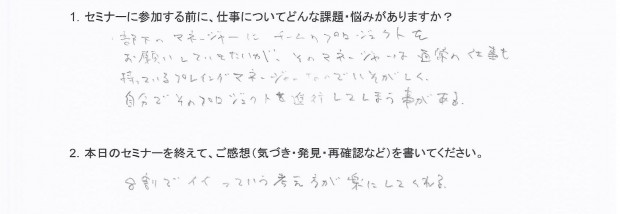 1. セミナーに参加する前に、仕事についてどんな課題・悩みがありますか？
・部下のマネージャーに チームのプロジェクトを
お願いしていきたいが、そのマネージャーは 通常の仕事も
持っているプレイングマネージャーなのでいそがしく、
自分でそのプロジェクトを進行してしまう事がある。
2. 本日のセミナーを終えて、ご感想（気づき・発見・再確認など）を書いてください。
8割でイイ っていう考え方が楽にしてくれる。